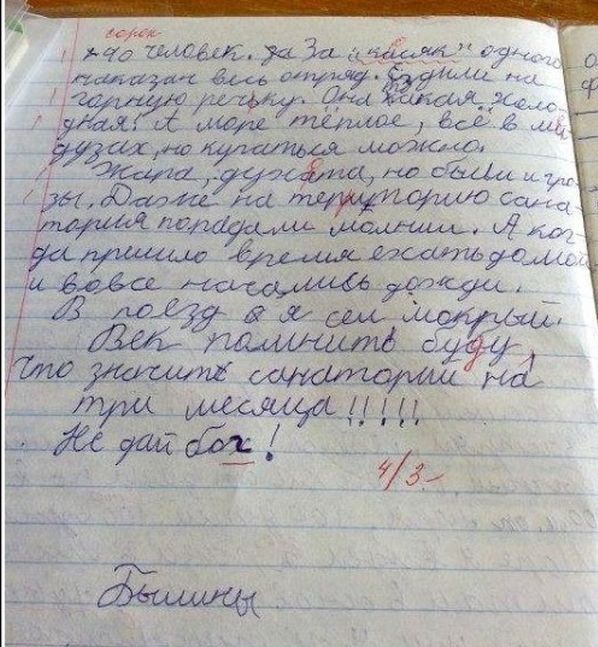 сорок
40 человек. за За „касяк" одного
наказан весь отряд. Ездили на
горную речьку. Она такая холо-
дная! А море тёплое, всё в ми-
дузах, но купаться можно.
Жара, духата, но были и гро-
зы. Даже на территорию сана-
тория попадали молнии. А ког-
да пришло время ехать домой
и вовсе начались дожди.
В поезд я сел мокрый.
Век помнить буду,
что значит санаторий на
три месяца!!!!!
Не дай бох!
4/3-
Былины